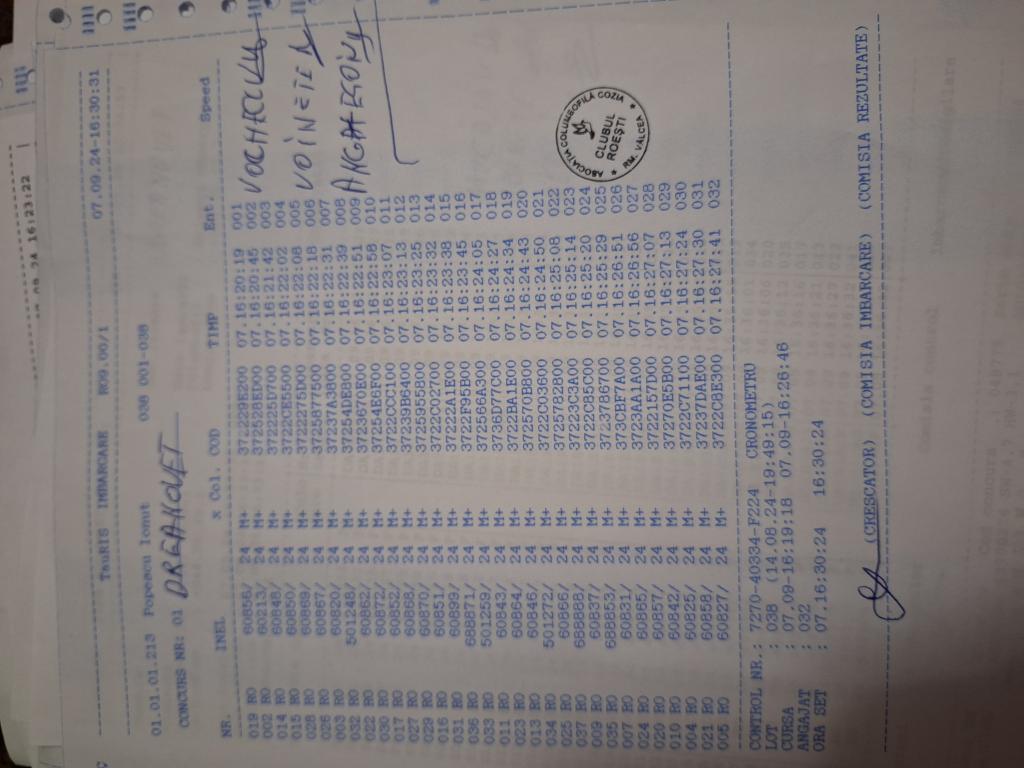 TauRIS IMBARCARE R09.00/1 07.09.24-16:30:31
01.01.01.213 Popescu Ionut 038 001-038
CONCURS NR: 01 DRGANOVET
NR. INEL x Col. COD TIMP Ent. Speed
019 RO 60856/ 24 M+ 37C229E200 07.16:20:19 001
002 RO 60213/ 24 M+ 372528ED00 07.16:20:45 002
014 RO 60848/ 24 M+ 372225D700 07.16:21:42 003
015 RO 60850/ 24 M+ 3722CE5500 07.16:22:02 004
028 RO 60869/ 24 M+ 3722275D00 07.16:22:08 005
026 RO 60867/ 24 M+ 3725877500 07.16:22:18 006
003 RO 60820/ 24 M+ 37237A3800 07.16:22:31 007
032 RO 501248/ 24 M+ 37254DE800 07.16:22:39 008
022 RO 60862/ 24 M+ 3723670E00 07.16:22:51 009
030 RO 60872/ 24 M+ 37254E6F00 07.16:22:58 010
017 RO 60852/ 24 M+ 3722CCC100 07.16:23:07 011
027 RO 60868/ 24 M+ 37239B6400 07.16:23:13 012
029 RO 60870/ 24 M+ 3725955800 07.16:23:25 013
016 RO 60851/ 24 M+ 3722C02700 07.16:23:32 014
031 RO 60899/ 24 M+ 37222A1E00 07.16:23:38 015
036 RO 688871/ 24 M+ 3722F95B00 07.16:23:45 016
033 RO 501259/ 24 M+ 372566A300 07.16:24:05 017
011 RO 60843/ 24 M+ 3736D77C00 07.16:24:27 018
023 RO 60864/ 24 M+ 3722BA1E00 07.16:24:34 019
013 RO 60846/ 24 M+ 372570B800 07.16:24:43 020
034 RO 501272/ 24 M+ 3722C03600 07.16:24:50 021
025 RO 60866/ 24 M+ 3725782800 07.16:25:08 022
037 RO 688888/ 24 M+ 37223C3A00 07.16:25:14 023
009 RO 60837/ 24 M+ 3722C85C00 07.16:25:20 024
035 RO 688853/ 24 M+ 3723786700 07.16:25:29 025
007 RO 60831/ 24 M+ 373CBF7A00 07.16:26:51 026
024 RO 60865/ 24 M+ 3723AA1A00 07.16:26:56 027
020 RO 60857/ 24 M+ 37270E5B00 07.16:27:07 028
010 RO 60842/ 24 M+ 3722157D00 07.16:27:13 029
004 RO 60825/ 24 M+ 3722C71100 07.16:27:24 030
021 RO 60858/ 24 M+ 37237DAE00 07.16:27:30 031
005 RO 60827/ 24 M+ 3722C8E300 07.16:27:41 032
VOINETE A
ASOCIATIA COLUMBOFILA COZIA
CLUBUL
ROESTI
RM. VALCEA
CONTROL NR.: 7270-40334-F224 CRONOMETRU
LOT : 038 (14.08.24-19:49:15)
CURSA : 07.09-16:19:18 07.09-16:26:46
ANGAJAT : 032
ORA SET : 07.16:30:24 16:30:24
(CRESCATOR) (COMISIA IMBARCARE) (COMISIA REZULTATE)